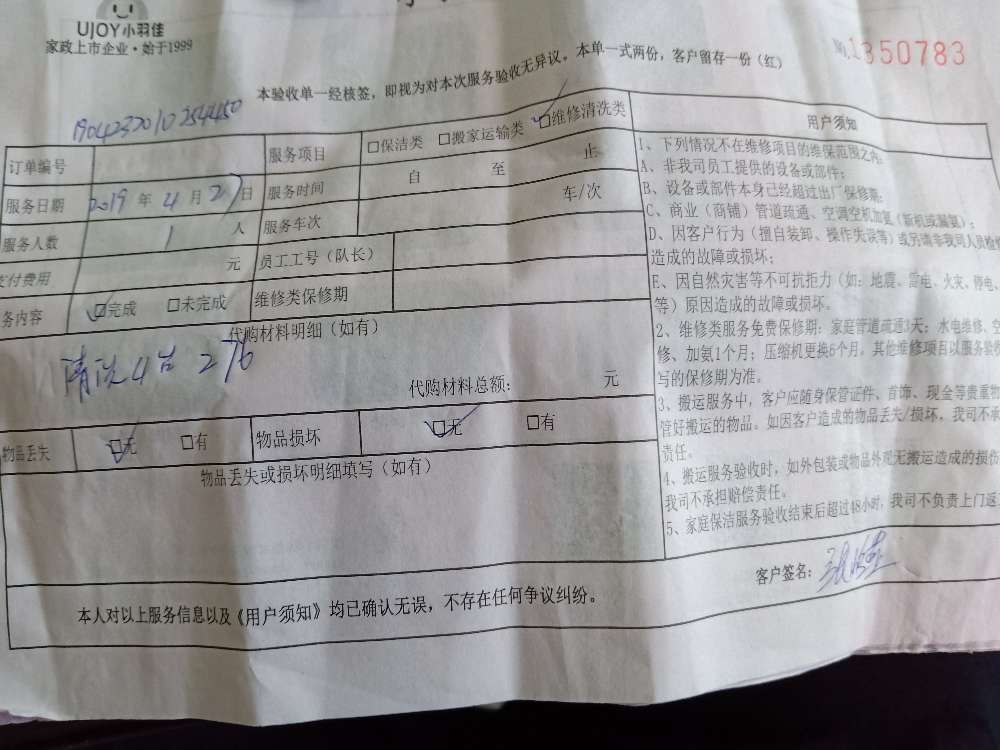 UJOY小羽佳
家政上市企业·始于1999
No.1350783
本验收单一经核签，即视为对本次服务验收无异议。本单一式两份，客户留存一份（红）
1904232010254450
订单编号 服务项目 □保洁类 □搬家运输类 □维修清洗类
服务日期 2019年4月27日 服务时间 自 至 止
服务人数 1人 服务车次 车/次
支付费用 元 员工工号（队长）
务内容 □完成 □未完成 维修类保修期
代购材料明细（如有）
清洗4台 276
代购材料总额： 元
物品丢失 □无 □有 物品损坏 □无 □有
物品丢失或损坏明细填写（如有）
本人对以上服务信息以及《用户须知》均已确认无误，不存在任何争议纠纷。
用户须知
1、下列情况不在维修项目的维保范围之内：
A、非我司员工提供的设备或部件；
B、设备或部件本身已经超过出厂保修期；
C、商业（商铺）管道疏通、空调空机加氨（新机或漏氨）；
D、因客户行为（擅自装卸、操作失误等）或另请非我司人员检修
造成的故障或损坏；
E、因自然灾害等不可抗拒力（如：地震、雷电、火灾、停电、
等）原因造成的故障或损坏。
2、维修类服务免费保修期：家庭管道疏通3天；水电维修、空
修、加氨1个月；压缩机更换6个月，其他维修项目以服务验收
写的保修期为准。
3、搬运服务中，客户应随身保管证件、首饰、现金等贵重物
管好搬运的物品。如因客户造成的物品丢失/损坏，我司不承
责任。
4、搬运服务验收时，如外包装或物品外观无搬运造成的损伤
我司不承担赔偿责任。
5、家庭保洁服务验收结束后超过48小时，我司不负责上门返
客户签名：